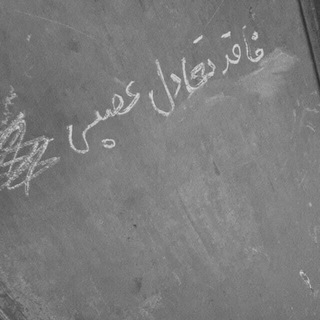 فاقد تعادل عصبی